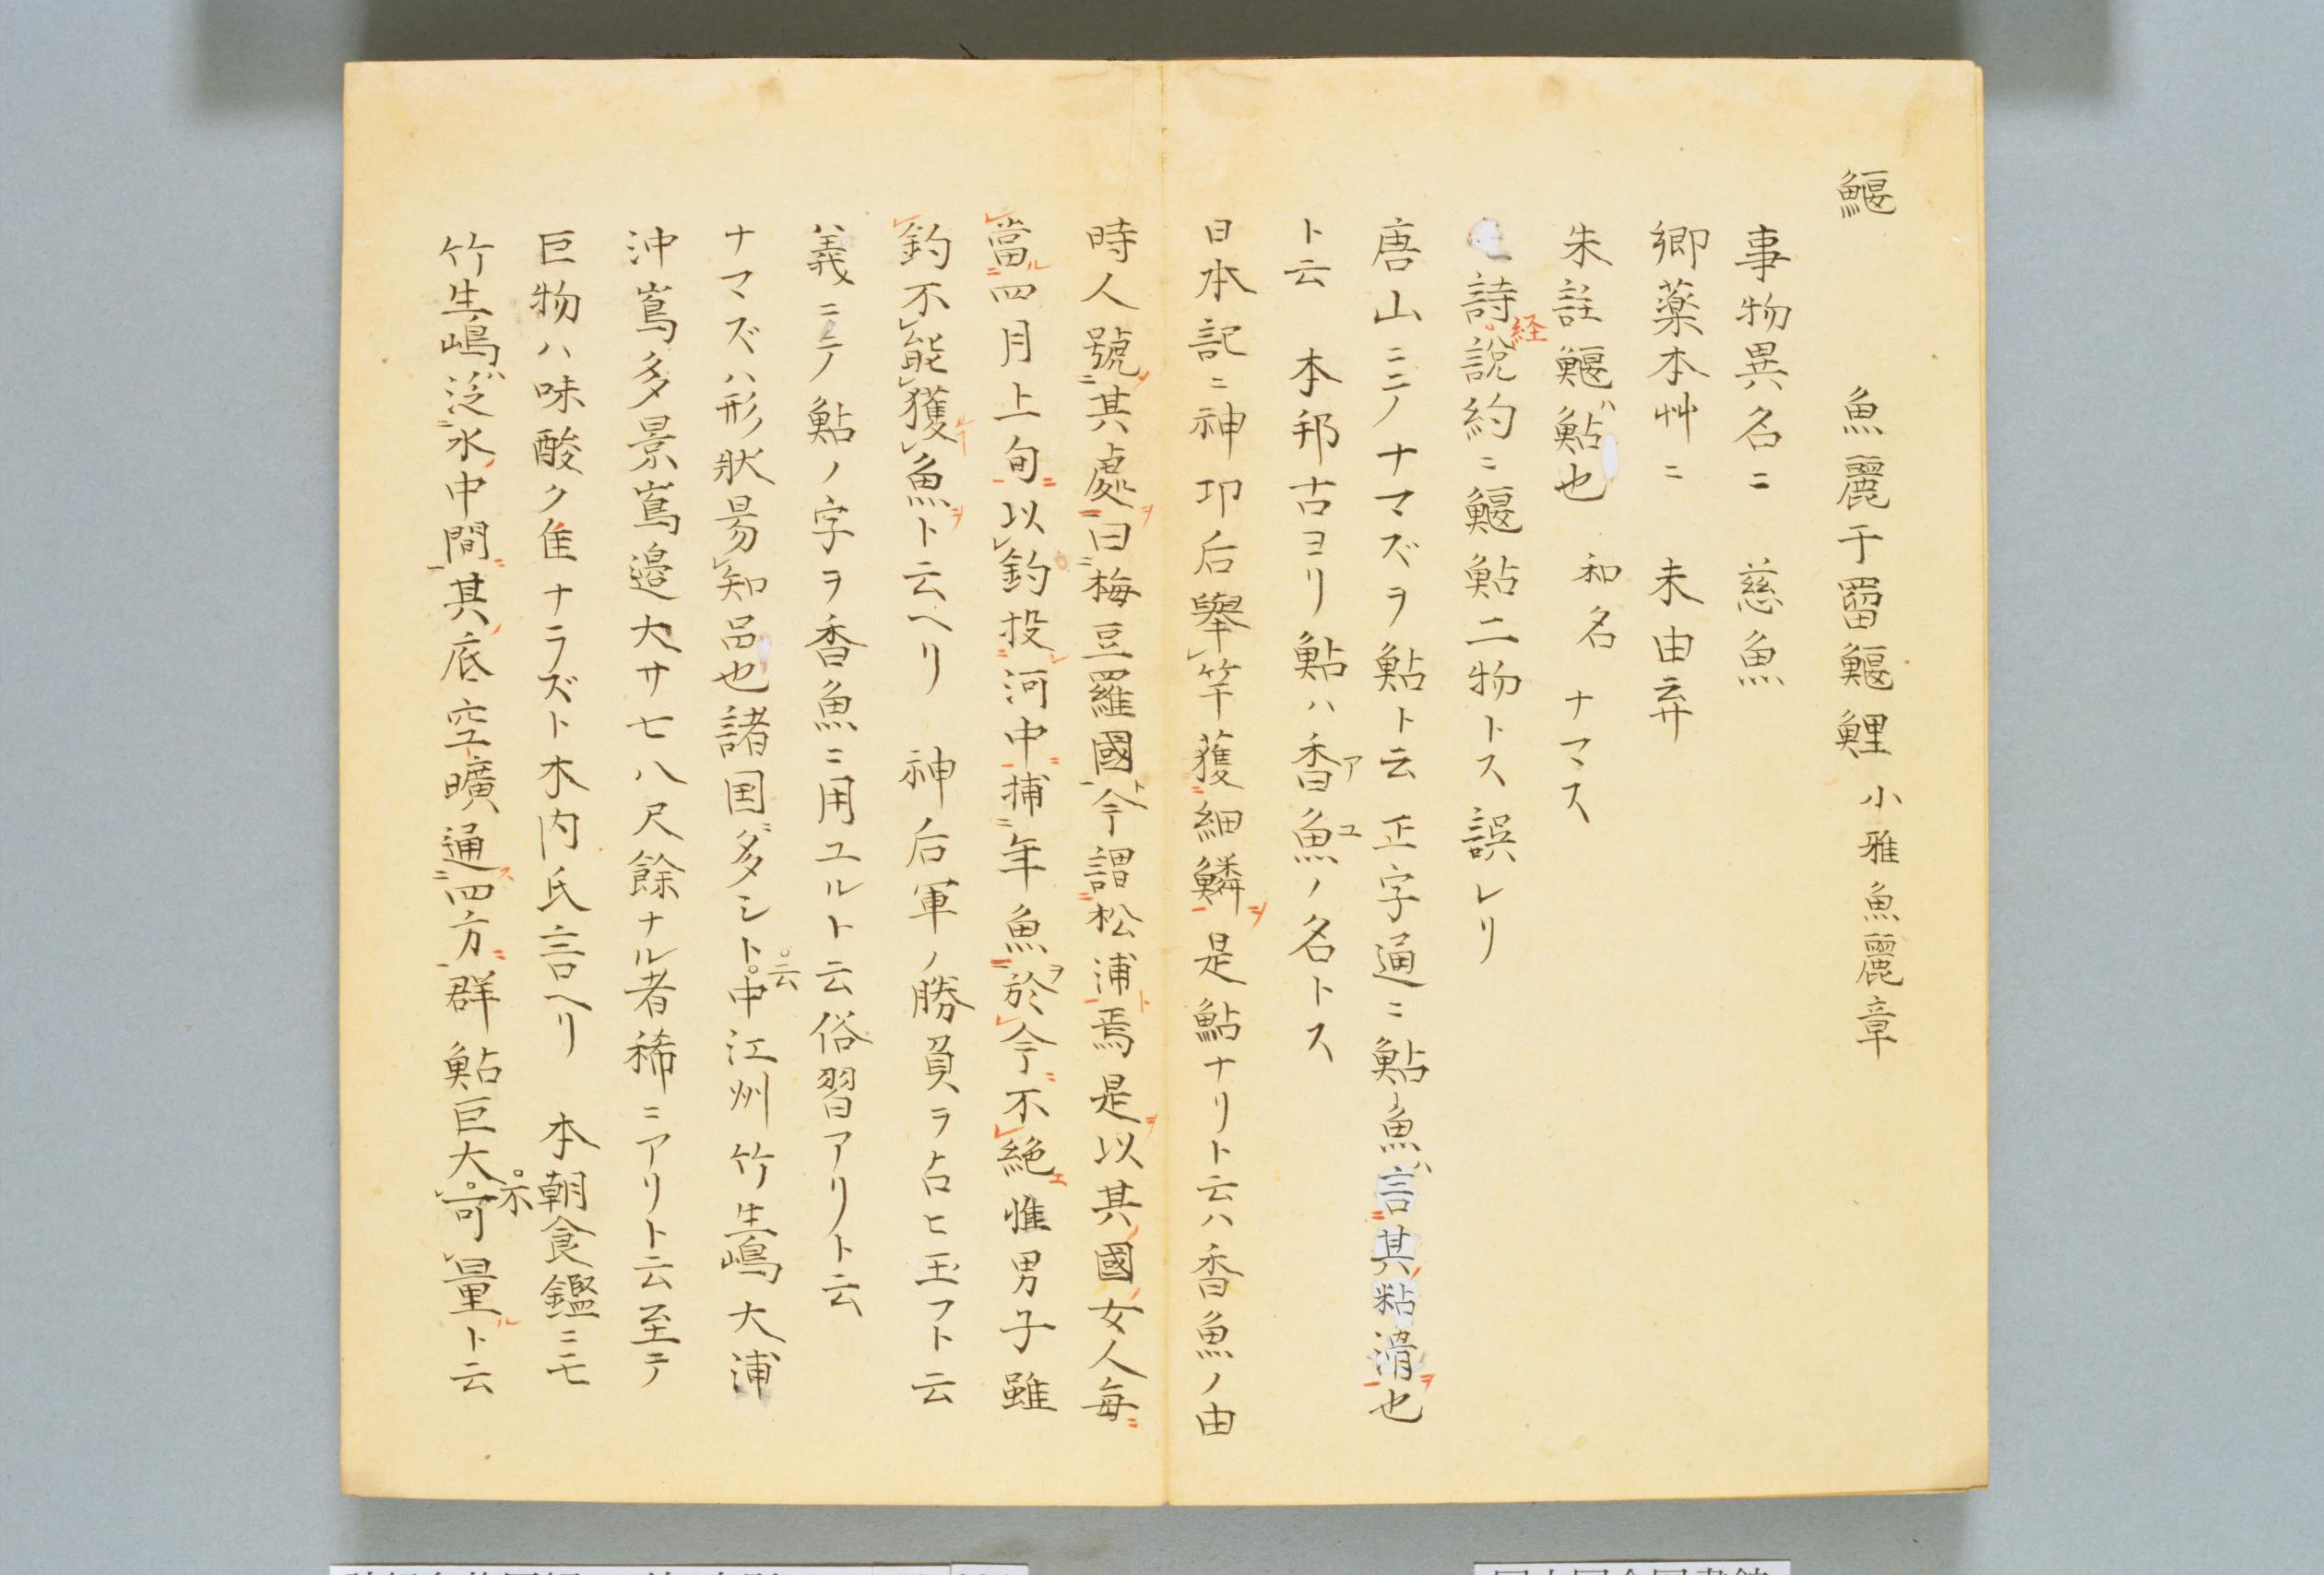 鰋　魚麗于罶鰋鯉 小雅魚麗章
事物異名ニ　慈魚
郷薬本艸ニ　未由弃
朱註鰋ハ鮎也　和名　ナマス
詩経説約ニ鰋鮎二物トス誤レリ
唐山ニテノナマズヲ鮎ト云正字通ニ鮎魚ハ言其粘滑ヲ也
ト云　本邦古ヨリ鮎ハ香魚ノ名トス アユ
日本記ニ神功后擧竿獲細鱗ヲ是鮎ナリト云ハ香魚ノ由
時人號其處ヲ曰梅豆羅國ト今謂松浦ト焉是ヲ以其國女人毎ニ
當ル四月上旬ニ以釣投シ河中ニ捕年魚ヲ於今ニ不絶エ惟男子雖
釣不能獲ルヿ魚ヲト云ヘリ　神后軍ノ勝負ヲ占ヒ玉フト云
義ニテノ鮎ノ字ヲ香魚ニ用ユルト云俗習アリト云
ナマズハ形状昜知品也諸国ニ多シト云中江州竹生嶋大浦
沖嶌多景嶌邉大サ七八尺餘ナル者稀ニアリト云至テ
巨物ハ味酸ク隹ナラズト木内氏言ヘリ　本朝食鑑ニモ
竹生嶋ハ泛水ノ中間ニ其ノ底空曠通ス四方ニ群鮎巨大不可量ルト云